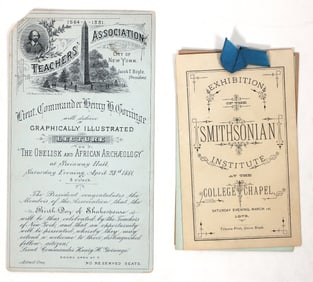 1564-1881.
TEACHERS' ASSOCIATION
CITY OF
NEW YORK.
President
Lieut. Commander Henry H. Gorringe
will deliver a
GRAPHICALLY ILLUSTRATED
LECTURE
"THE OBELISK AND AFRICAN ARCHÆOLOGY"
at Steinway Hall,
Saturday Evening, April 23rd 1881.
8 O'CLOCK
The President congratulates the
Members of the Association that the
Birth Day of Shakespeare
will be thus celebrated by the Teachers
of New York, and that an opportunity
will be presented whereby they may
extend a welcome to their distinguished
fellow citizen,
Lieut. Commander Henry H. Gorringe.
DOORS OPEN AT 7.
Admit One.
NO RESERVED SEATS.
EXHIBITION
OF THE
SMITHSONIAN
INSTITUTE
AT THE
COLLEGE CHAPEL,
SATURDAY EVENING, MARCH